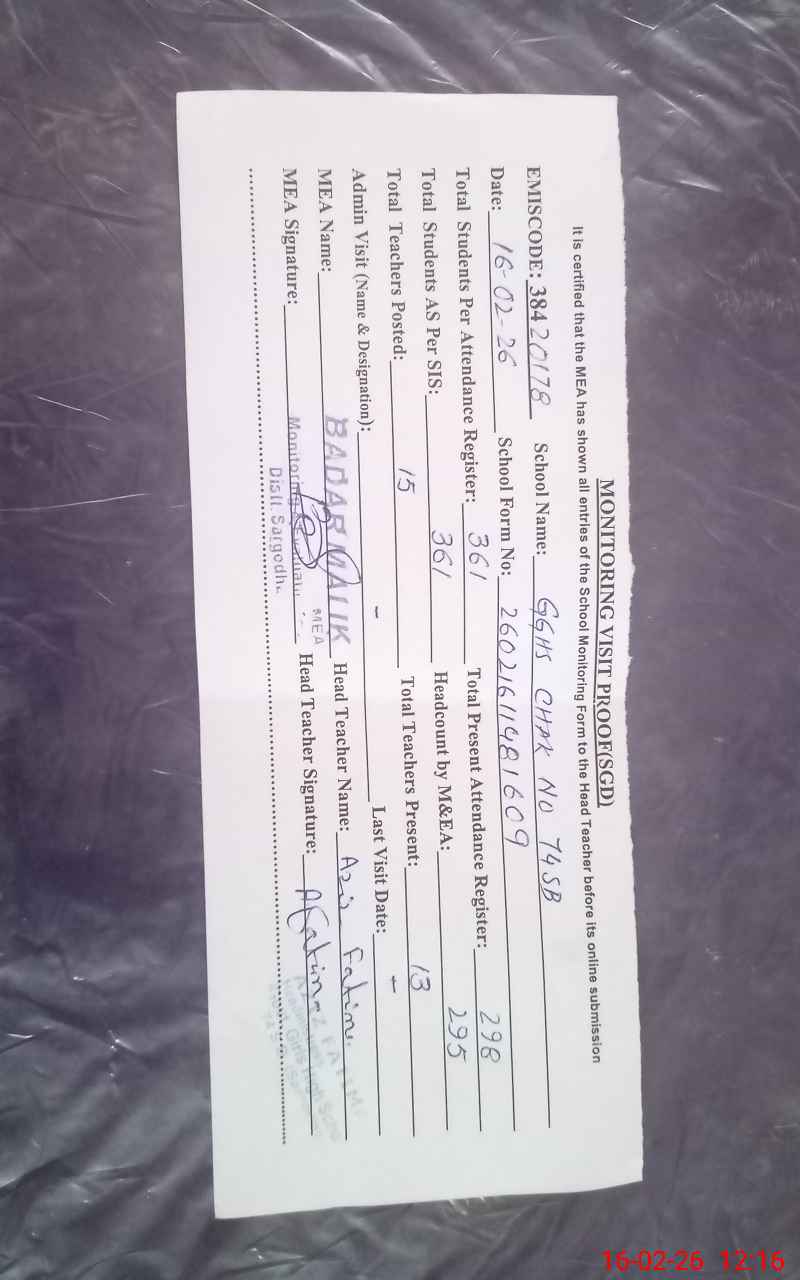 MONITORING VISIT PROOF(SGD)
It is certified that the MEA has shown all entries of the School Monitoring Form to the Head Teacher before its online submission
EMISCODE: 38420178 School Name: GGHS CHAK NO 74SB
Date: 16-02-26 School Form No: 2602161148 1609
Total Students Per Attendance Register: 361 Total Present Attendance Register: 298
Total Students AS Per SIS: 361 Headcount by M&EA: 295
Total Teachers Posted: 15 Total Teachers Present: 13
Admin Visit (Name & Designation): - Last Visit Date: -
MEA Name: BADAR MALIK Head Teacher Name: Aziz Fatima
MEA Signature: MEA Head Teacher Signature: AFatima
Monitoring &
Distt. Sargodha
AZIZ FATIMA
16-02-26 12:16